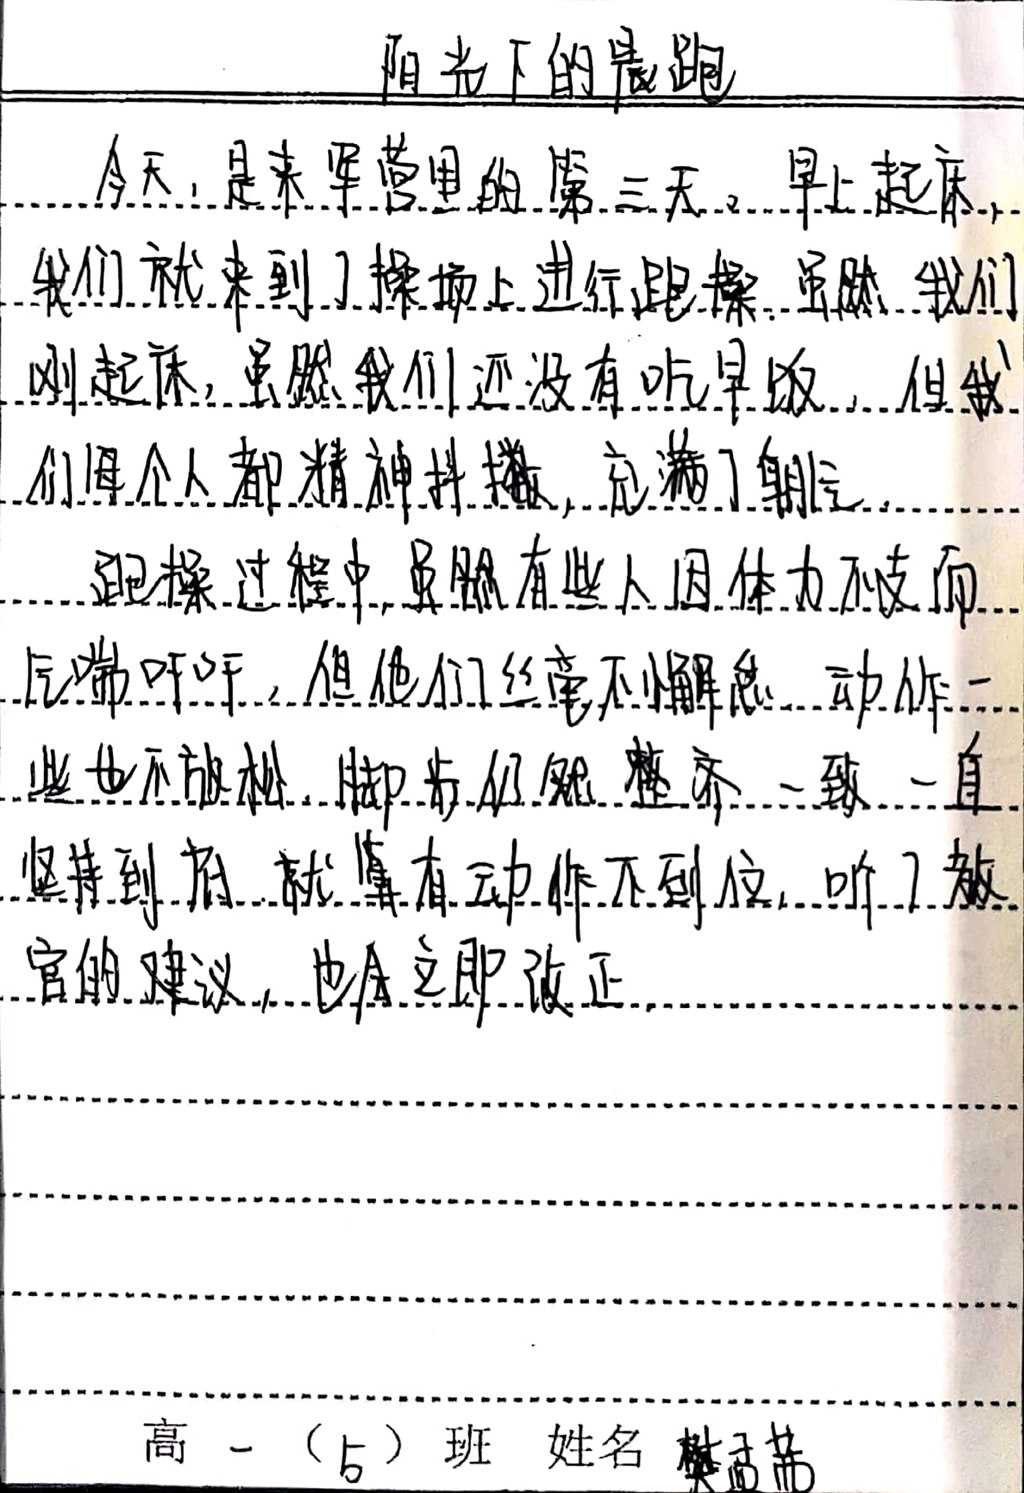 阳光下的晨跑
今天，是来军营里的第三天。早上起床，
我们就来到了操场上进行跑操。虽然我们
刚起床，虽然我们还没有吃早饭，但我
们每个人都精神抖擞，充满了朝气。
跑操过程中，虽然有些人因体力不支而
气喘吁吁，但他们丝毫不懈怠，动作一
些也不放松，脚步仍然整齐一致，一直
坚持到底。就算有动作不到位，听了教
官的建议，也会立即改正。
高一（5）班 姓名 樊孟芾